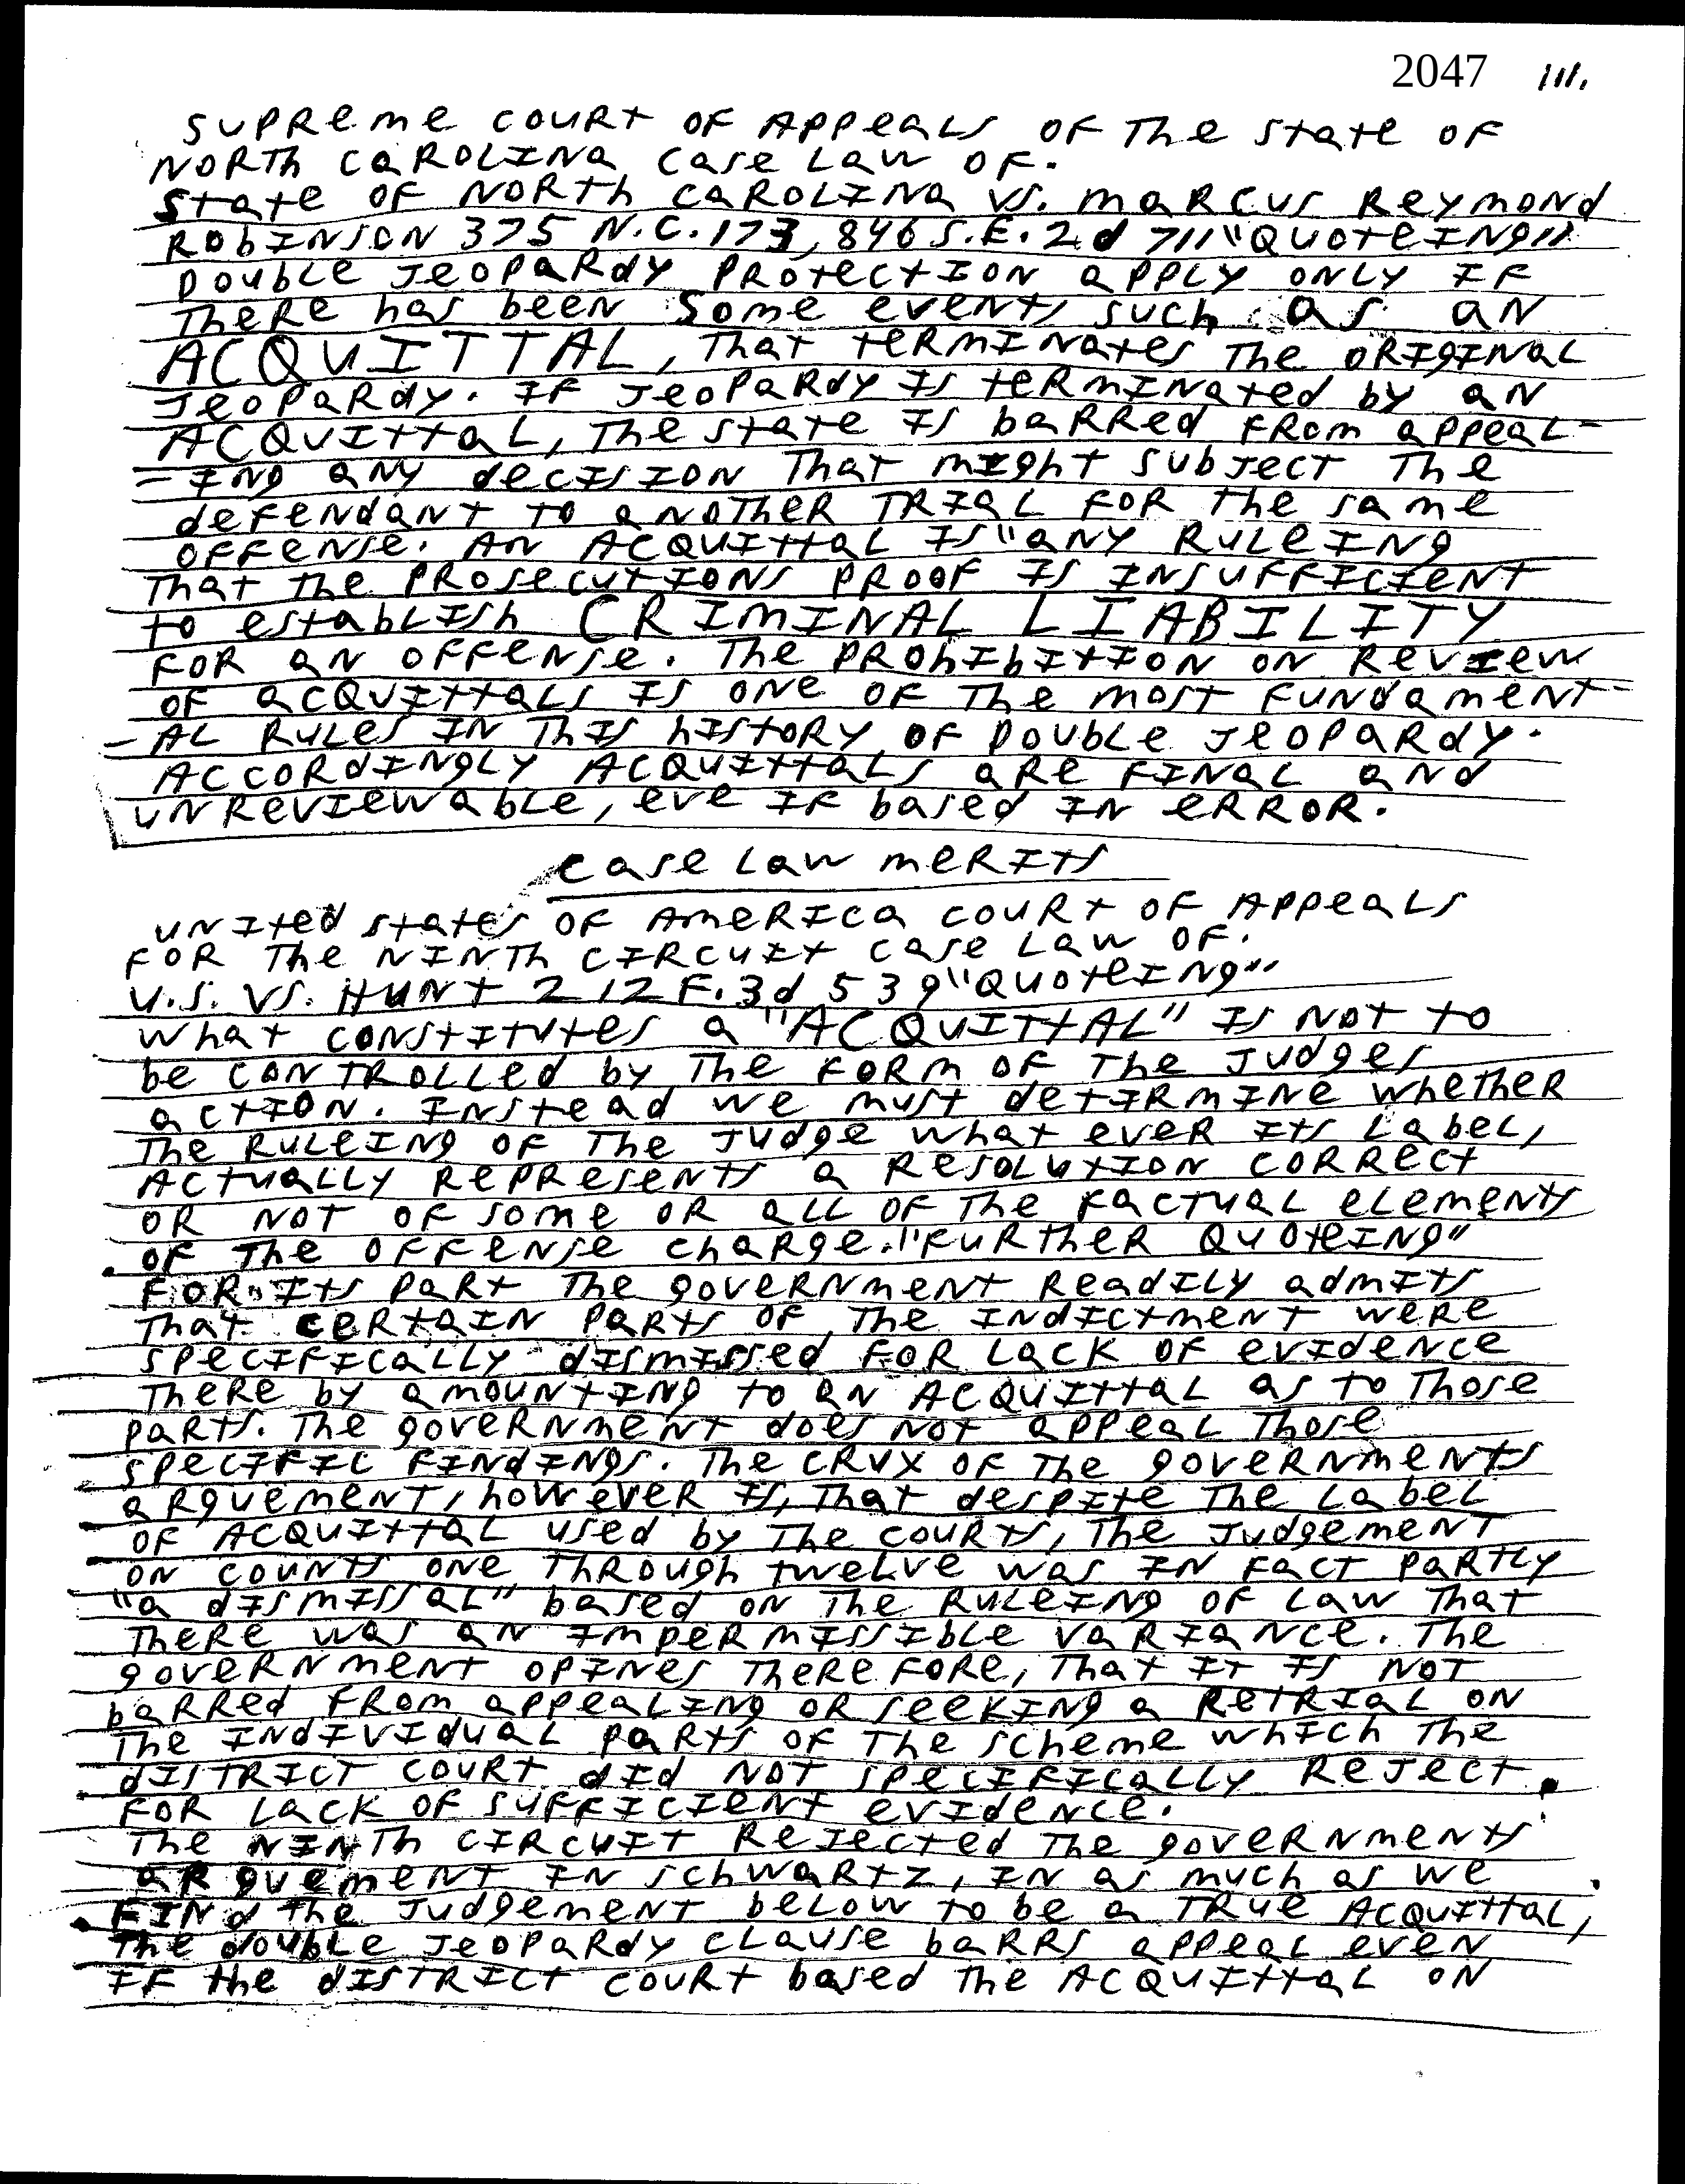 2047 111.
SUPREME COURT OF APPEALS OF THE STATE OF
NORTH CAROLINA CASE LAW OF.
STATE OF NORTH CAROLINA VS. MARCUS REYMOND
ROBINSON 375 N.C. 173, 846 S.E. 2d 711 "QUOTEING"
DOUBLE JEOPARDY PROTECTION APPLY ONLY IF
THERE HAS BEEN SOME EVENT, SUCH AS AN
ACQUITTAL, THAT TERMINATES THE ORIGINAL
JEOPARDY. IF JEOPARDY IS TERMINATED BY AN
ACQUITTAL, THE STATE IS BARRED FROM APPEAL-
-ING ANY DECISION THAT MIGHT SUBJECT THE
DEFENDANT TO ANOTHER TRIAL FOR THE SAME
OFFENSE. AN ACQUITTAL IS "ANY RULEING
THAT THE PROSECUTIONS PROOF IS INSUFFICIENT
TO ESTABLISH CRIMINAL LIABILITY
FOR AN OFFENSE. THE PROHIBITION ON REVIEW
OF ACQUITTALS IS ONE OF THE MOST FUNDAMENT-
-AL RULES IN THIS HISTORY OF DOUBLE JEOPARDY.
ACCORDINGLY ACQUITTALS ARE FINAL AND
UNREVIEWABLE, EVE IF BASED IN ERROR.
CASE LAW MERITS
UNITED STATES OF AMERICA COURT OF APPEALS
FOR THE NINTH CIRCUIT CASE LAW OF.
U.S. VS. HUNT 212 F.3d 539 "QUOTEING"
WHAT CONSTITUTES A "ACQUITTAL" IS NOT TO
BE CONTROLLED BY THE FORM OF THE JUDGES
ACTION. INSTEAD WE MUST DETIRMINE WHETHER
THE RULEING OF THE JUDGE WHAT EVER ITS LABEL,
ACTUALLY REPRESENTS A RESOLUTION CORRECT
OR NOT OF SOME OR ALL OF THE FACTUAL ELEMENTS
OF THE OFFENSE CHARGE. "FURTHER QUOTEING"
FOR ITS PART THE GOVERNMENT READILY ADMITS
THAT CERTAIN PARTS OF THE INDICTMENT WERE
SPECIFICALLY DISMISSED FOR LACK OF EVIDENCE
THERE BY AMOUNTING TO AN ACQUITTAL AS TO THOSE
PARTS. THE GOVERNMENT DOES NOT APPEAL THOSE
SPECIFIC FINDINGS. THE CRUX OF THE GOVERNMENTS
ARGUEMENT, HOWEVER IS, THAT DESPITE THE LABEL
OF ACQUITTAL USED BY THE COURTS, THE JUDGEMENT
ON COUNTS ONE THROUGH TWELVE WAS IN FACT PARTLY
"A DISMISSAL" BASED ON THE RULEING OF LAW THAT
THERE WAS AN IMPERMISSIBLE VARIANCE. THE
GOVERNMENT OPINES THEREFORE, THAT IT IS NOT
BARRED FROM APPEALING OR SEEKING A RETRIAL ON
THE INDIVIDUAL PARTS OF THE SCHEME WHICH THE
DISTRICT COURT DID NOT SPECIFICALLY REJECT
FOR LACK OF SUFFICIENT EVIDENCE.
THE NINTH CIRCUIT REJECTED THE GOVERNMENTS
ARGUEMENT IN SCHWARTZ, IN AS MUCH AS WE
FIND THE JUDGEMENT BELOW TO BE A TRUE ACQUITTAL,
THE DOUBLE JEOPARDY CLAUSE BARRS APPEAL EVEN
IF THE DISTRICT COURT BASED THE ACQUITTAL ON